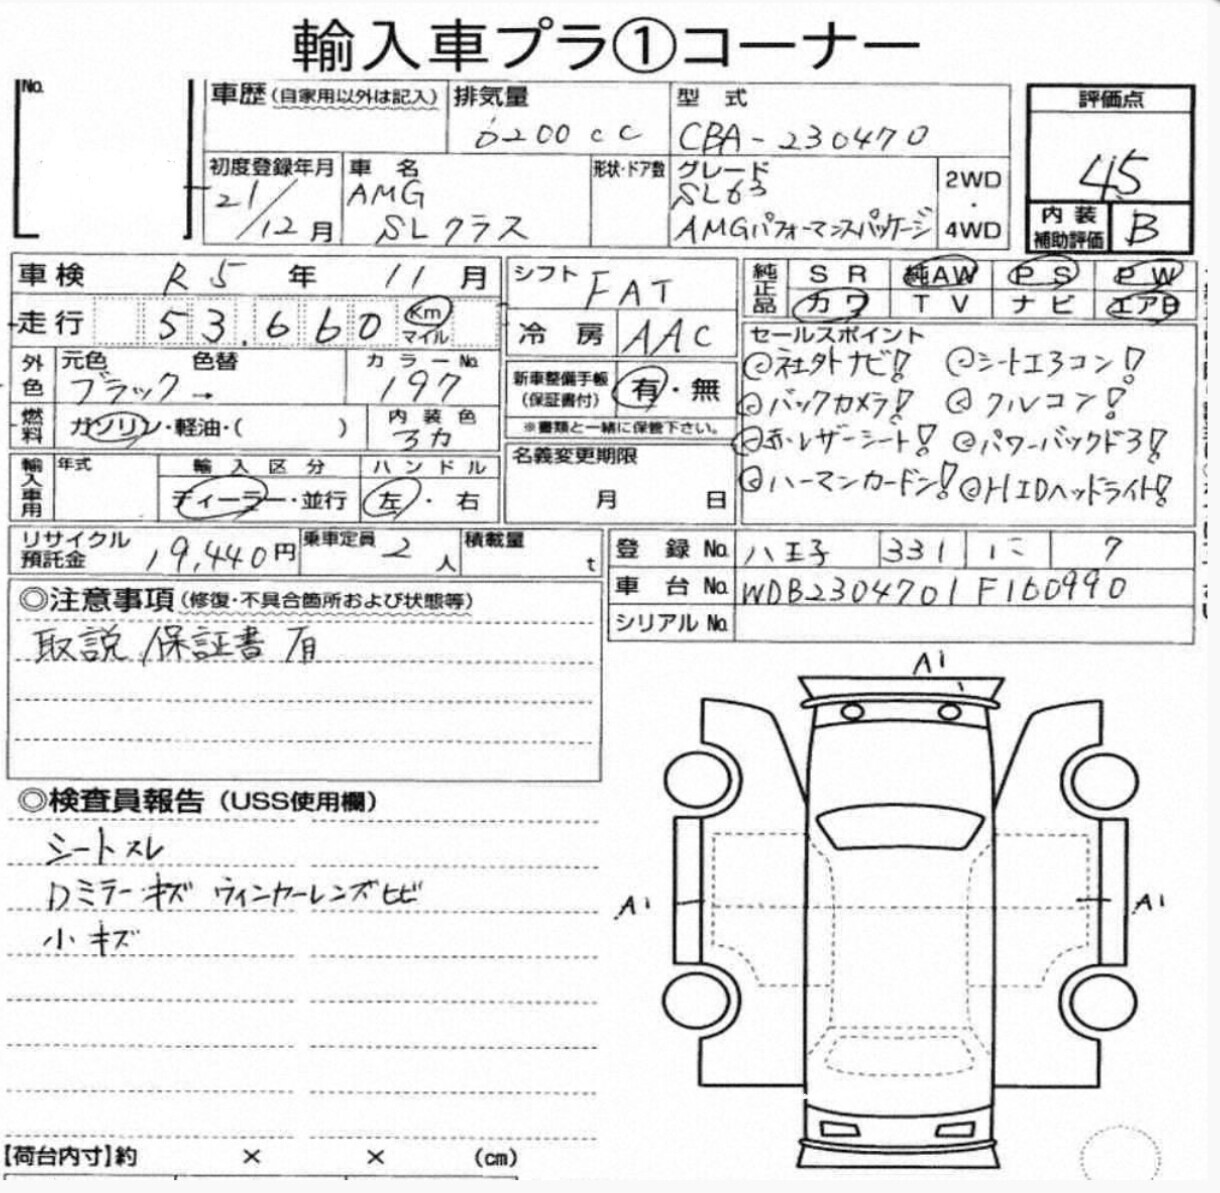 輸入車プラ①コーナー
No.
車歴 (自家用以外は記入)
排気量
6200cc
型式
CBA-230470
評価点
4.5
初度登録年月
21/12月
車名
AMG
SLクラス
形状・ドア数
グレード
SL63
AMGパフォーマンスパッケージ
2WD
・
4WD
内装
補助評価
B
車検 R5年 11月
シフト FAT
純正品
SR 純AW PS PW
カワ TV ナビ エアB
走行 53,660 Km
マイル
冷房 AAC
セールスポイント
◎社外ナビ! ◎シートエアコン!
◎バックカメラ! ◎クルコン!
◎赤レザーシート! ◎パワーバックドア!
◎ハーマンカードン! ◎HIDヘッドライト!
外色
元色 色替
ブラック→
カラーNo.
197
新車整備手帳
(保証書付)
有・無
※書類と一緒に保管下さい。
燃料
ガソリン・軽油・( )
内装色
アカ
名義変更期限
月 日
輸入車用
年式
輸入区分
ディーラー・並行
ハンドル
左・右
リサイクル
預託金
19,440円
乗車定員 2人
積載量 t
登録No. 八王子 331 に 7
車台No. WDB2304701F160990
シリアルNo.
◎注意事項(修復・不具合箇所および状態等)
取説、保証書有
A1
◎検査員報告(USS使用欄)
シートスレ
Dミラーキズ ウィンカーレンズヒビ
小キズ
A1
A1
【荷台内寸】約 × × (cm)